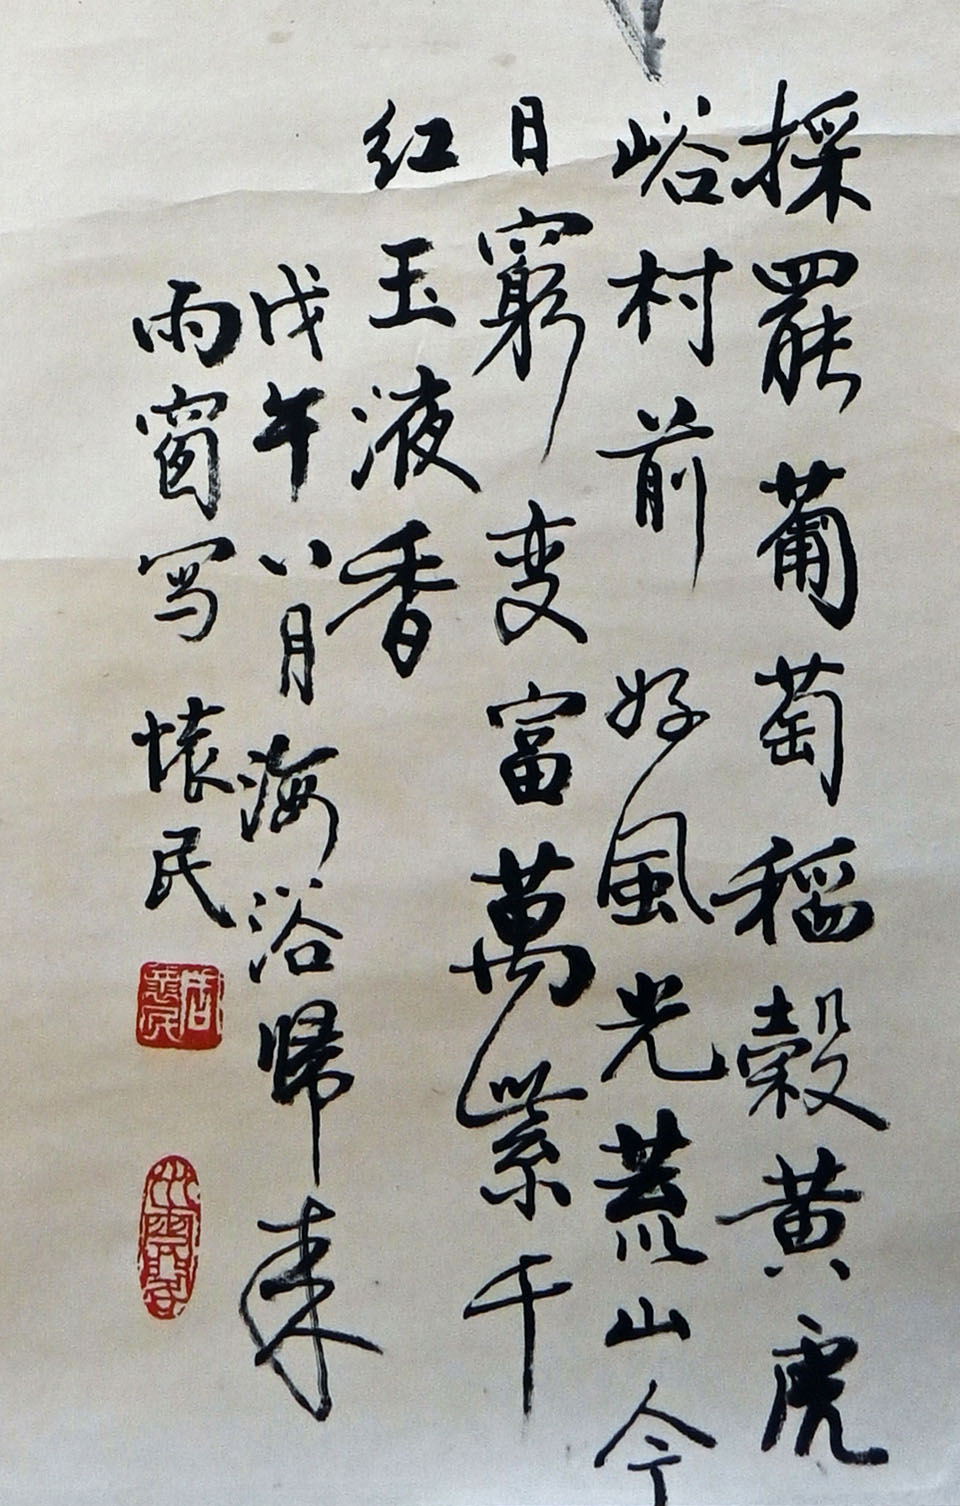 採罷葡萄稻穀黃虎
峪村前好風光荒山今
日窮变富萬紫千
红玉液香
戊午八月海浴歸来
雨窗写懷民
周懷民